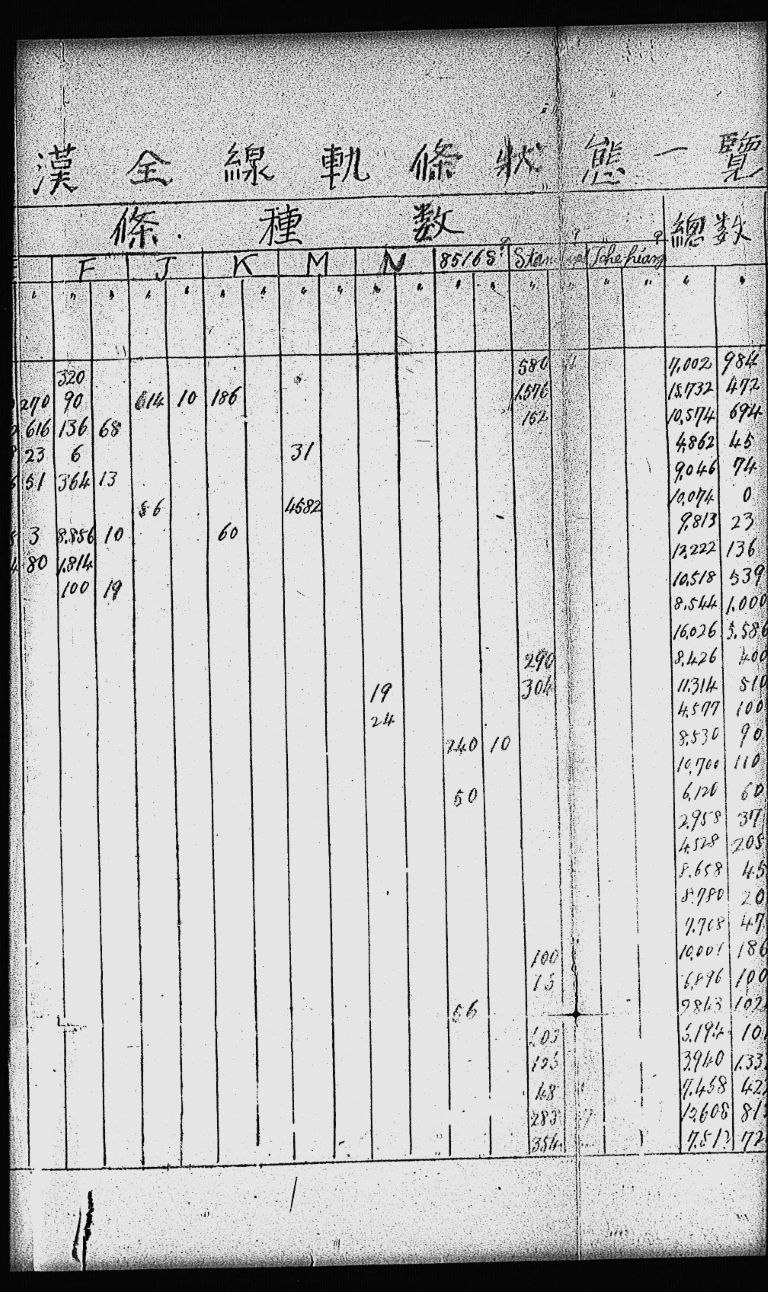 漢全線軌條狀態一覽
條種数 總数
F J K M N 8516S? Stan ? Tche piang ?
" " " " " " " " " " " " " " " " " "
320 580 7,002 984
270 90 614 10 186 1,576 15,732 472
616 136 68 152 10,574 694
23 6 31 4,862 45
51 364 13 9,046 74
86 4582 10,074 0
3 8,856 10 60 9,813 23
80 1,814 12,222 136
100 19 10,518 539
8,544 1,000
16,026 3,586
290 8,426 400
19 304 11,314 510
24 4,577 100
240 10 8,530 90
10,700 110
50 6,120 60
2,958 37
4,528 205
8,658 45
8,780 20
7,708 47
100 10,001 186
15 6,896 100
56 9843 102
103 5,194 10
125 3,940 1,33
48 7,458 42
283 12,608 81
354 7,51 72